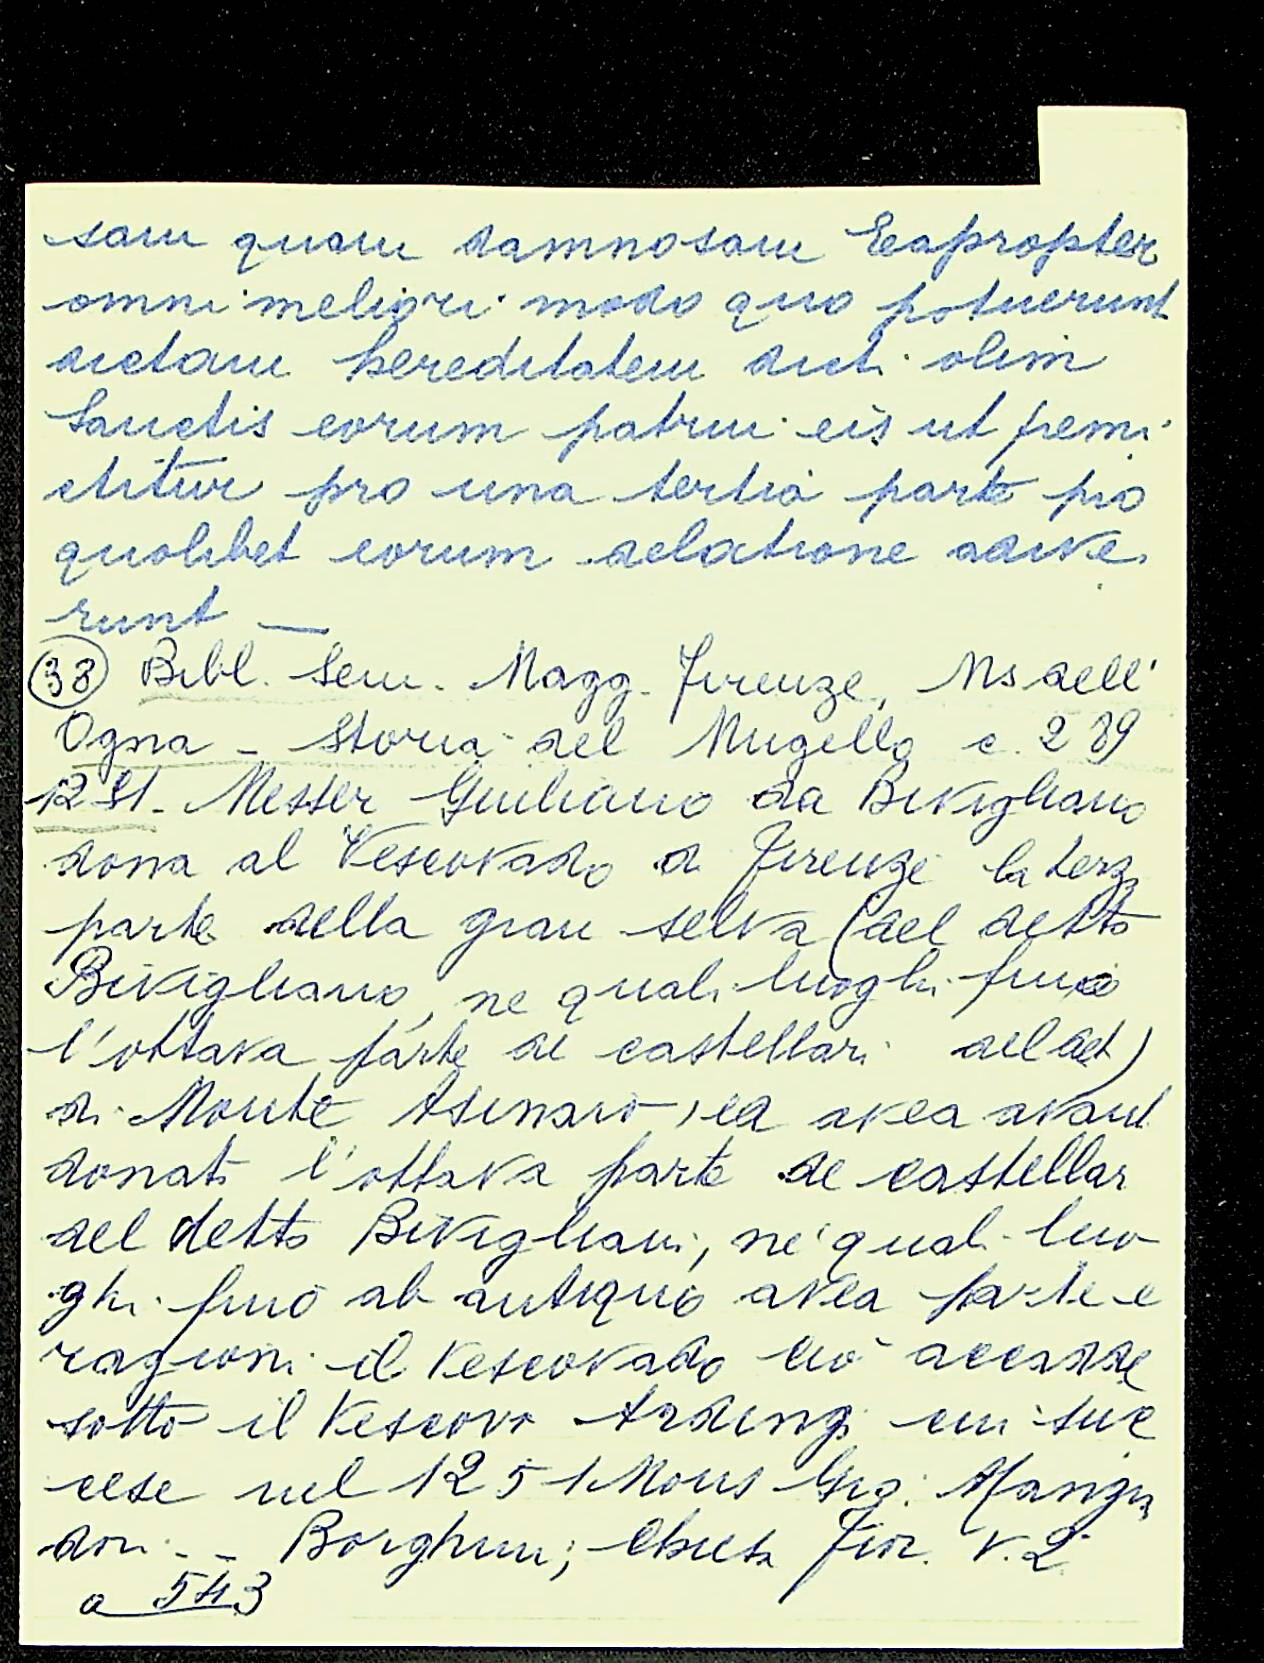 sam quam damnosam Eapropter
omni meliori modo quo potuerunt
dictam hereditatem dicti olim
Sanctis eorum patrui eis ut premi
ctitur pro una tertia parte pro
quolibet eorum delatione adive
runt —
(38) Bibl. Sem. Magg. Firenze, Ms dell'
Ogna - Storia del Mugello c. 289
1251. Messer Giuliano da Bivigliano
dona al Vescovado di Firenze la terz
parte della gran selva (del detto
Bivigliano, ne quali luoghi fino
l'ottava parte di castellari del det)
di Monte Asinario, ed avea avant
donati l'ottava parte de castellar
del detto Bivigliani, ne' quali luo
ghi fino ab antiquo avea parte e
ragioni il Vescovado ciò accadde
sotto il Vescovo Ardingi cui suc
cese nel 1251 Mons Gio. Mangia
dori - - Borghini; Chiesa Fior. V. 2
a 543